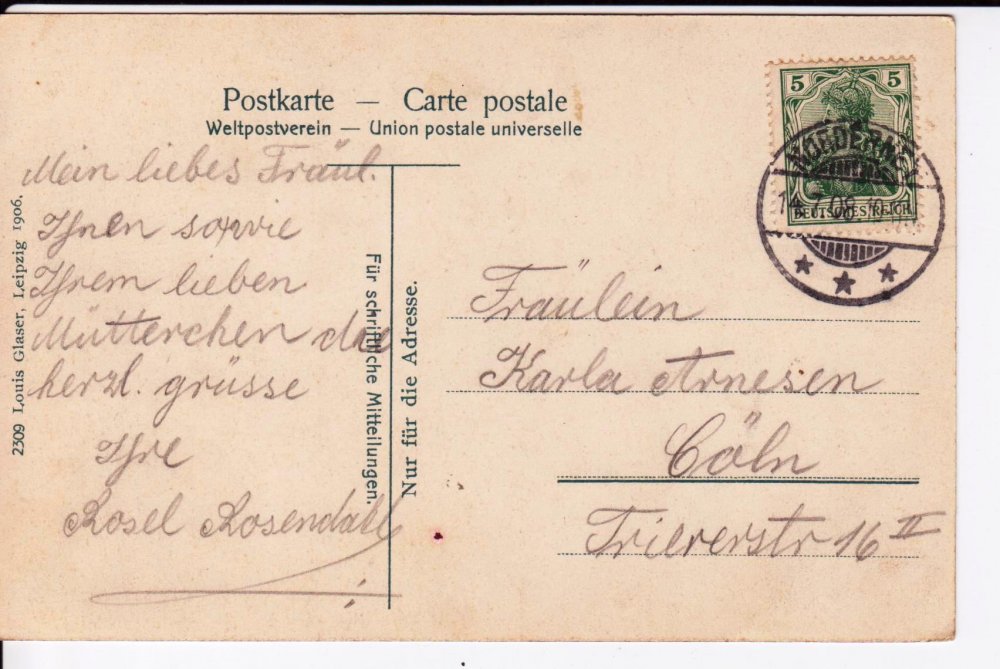 Postkarte — Carte postale
Weltpostverein — Union postale universelle
5 5
DEUTSCHES REICH
NORDERNEY
14.7.08.
Mein liebes Fräul.
Ihnen sowie
Ihrem lieben
Mütterchen die
herzl. grüsse
Ihre
Rosel Rosendahl
Für schriftliche Mitteilungen.
Nur für die Adresse.
Fräulein
Karla Arnesen
Cöln
Triererstr 16 II
2309 Louis Glaser, Leipzig 1906.